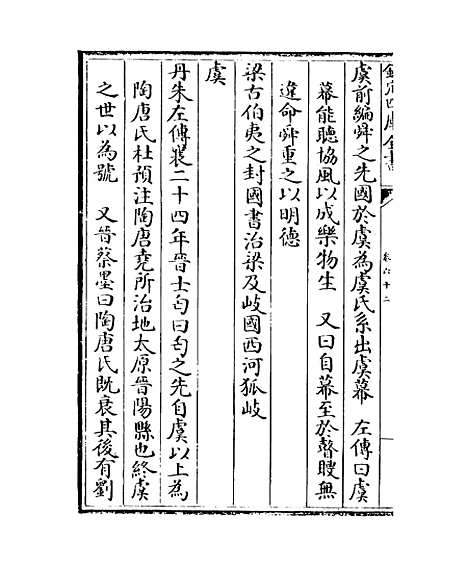 欽定四庫全書
卷六十二
虞前編舜之先國於虞為虞氏系出虞幕　左傳曰虞
幕能聽協風以成樂物生　又曰自幕至於瞽瞍無
違命舜重之以明德
梁古伯夷之封國書治梁及岐國西河狐岐
虞
丹朱左傳襄二十四年晉士匄曰匄之先自虞以上為
陶唐氏杜預注陶唐堯所治地太原晉陽縣也終虞
之世以為號　又晉蔡墨曰陶唐氏既衰其後有劉